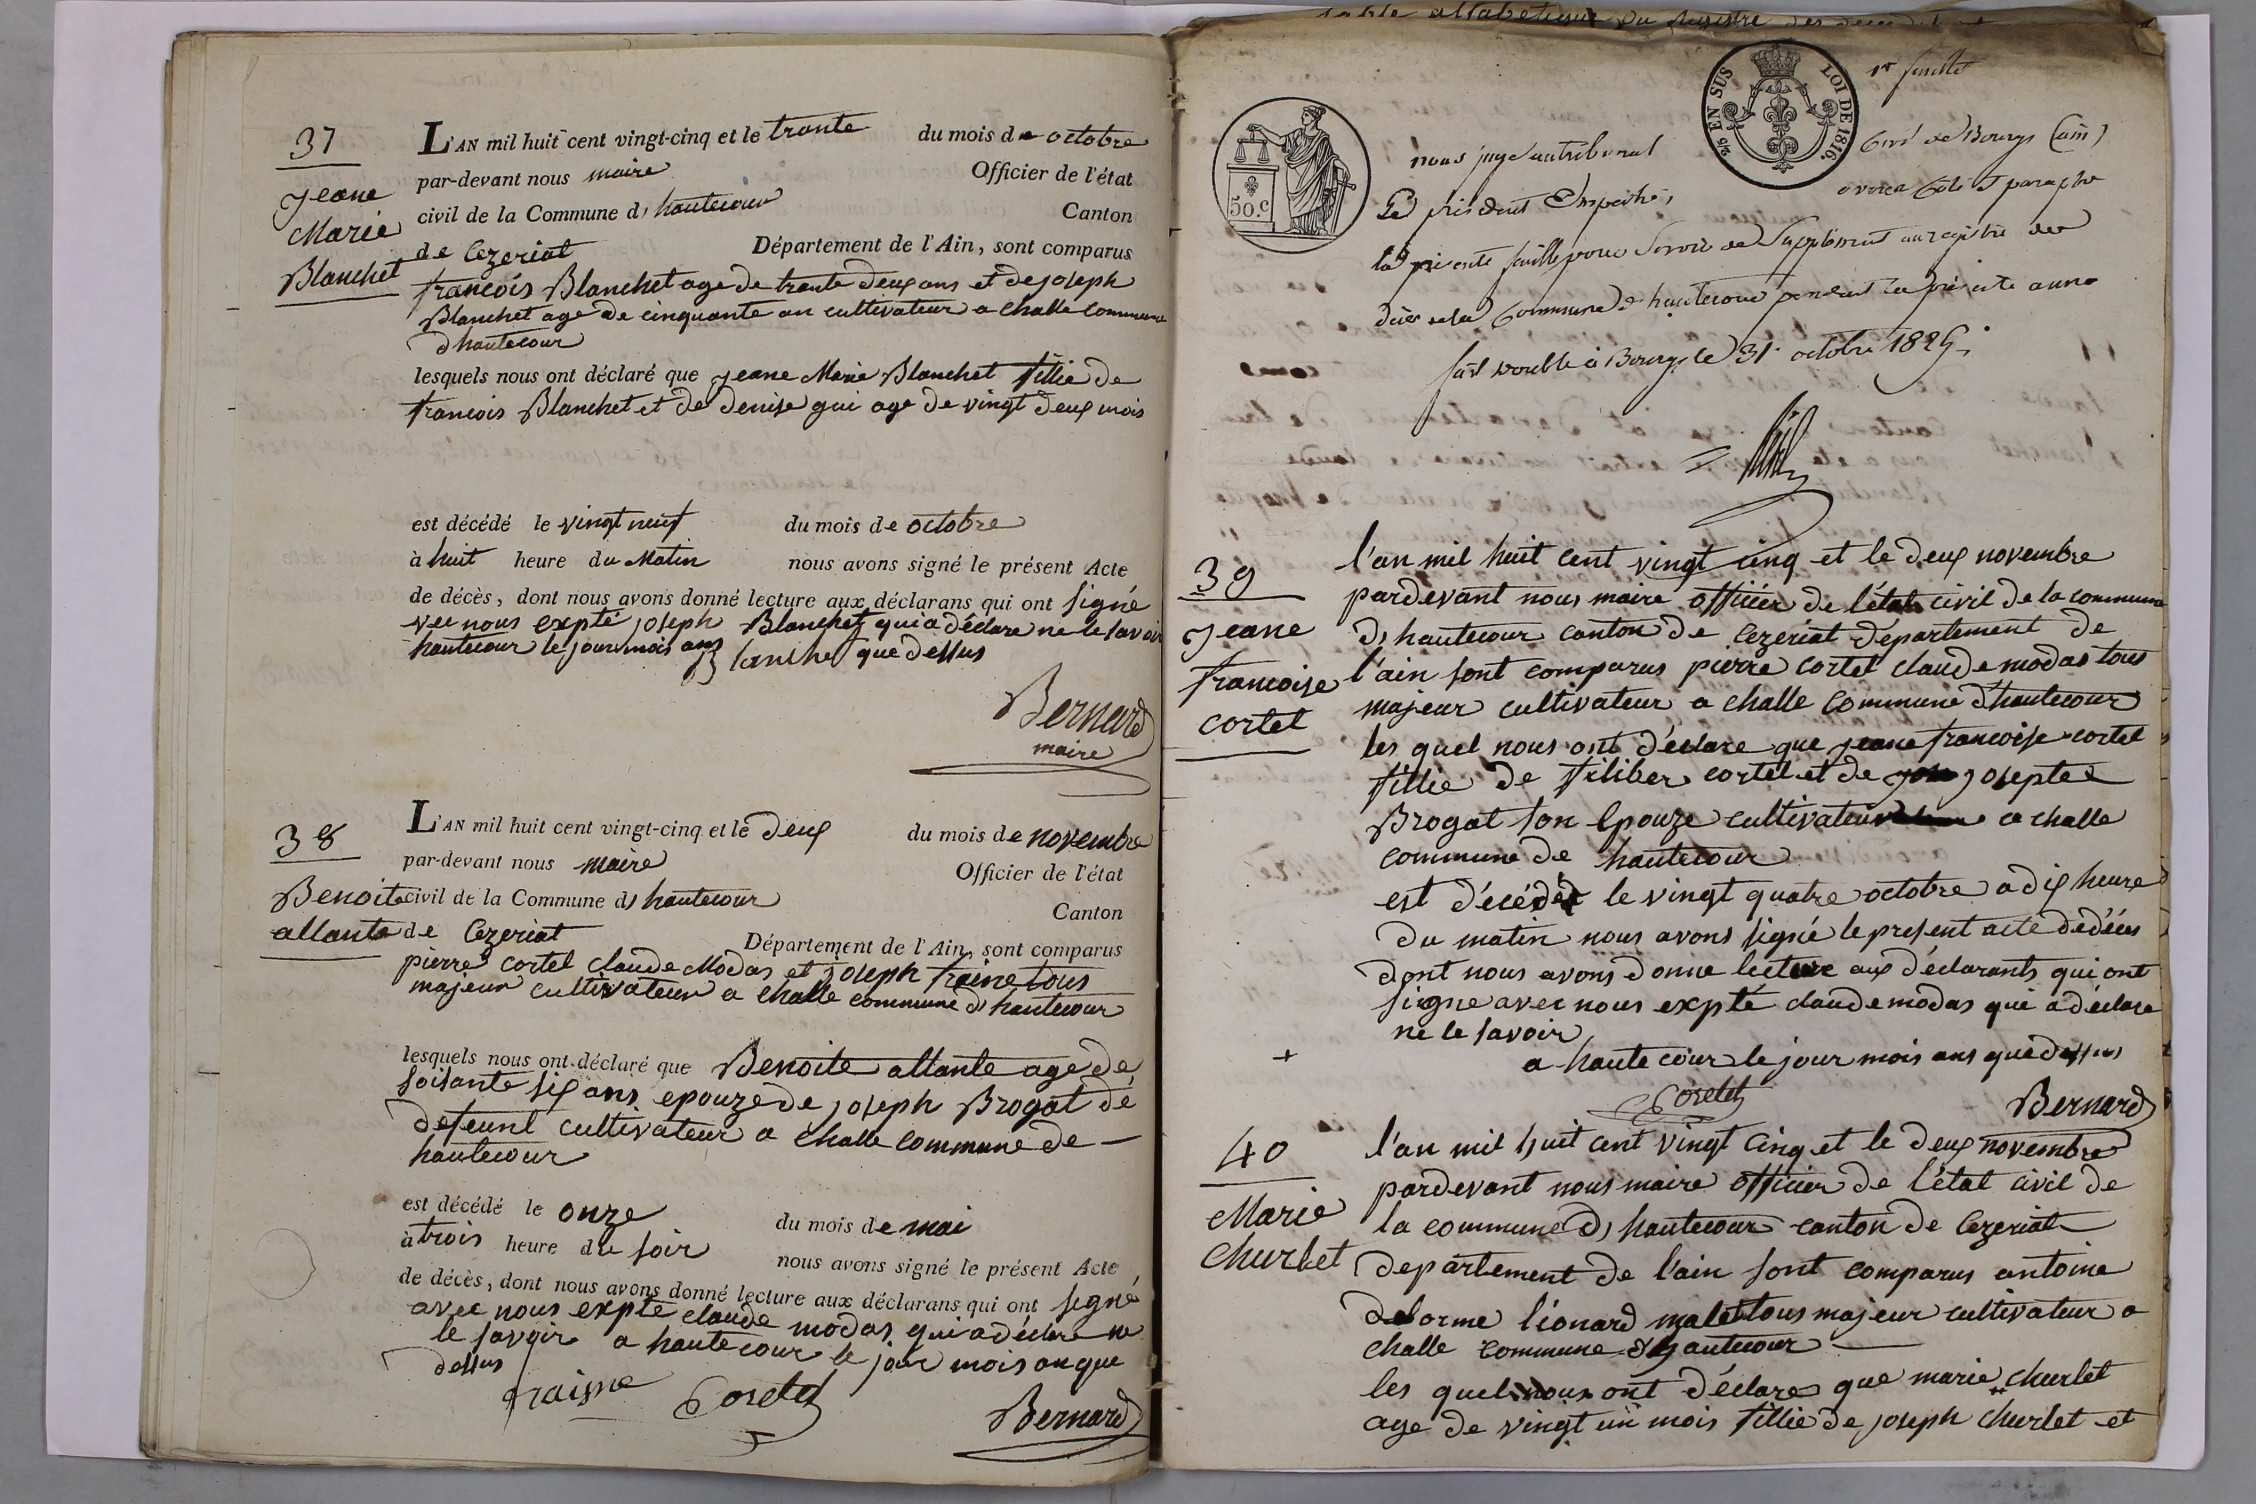 37
Jeane
Marie
Blanchet
L'AN mil huit cent vingt-cinq et le trante du mois de octobre
par-devant nous maire Officier de l'état
civil de la Commune d, hautecour Canton
de Cezeriat Département de l'Ain, sont comparus
francois Blanchet age de trante deux ans et de joseph
Blanchet age de cinquante an cultivateur a challe commune
dhautecour
lesquels nous ont déclaré que jeane Marie Blanchet fillie de
francois Blanchet et de denise gui age de vingt deux mois
est décédé le vingt neuf du mois de octobre
à huit heure du Matin nous avons signé le présent Acte
de décès, dont nous avons donné lecture aux déclarans qui ont signé
vec nous expté joseph Blanchet qui a déclare ne le savoir
hautecour le jour mois ans que dessus
Blanchet
Bernard
maire
38
Benoite
allante
L'AN mil huit cent vingt-cinq et le deux du mois de novembre
par-devant nous maire Officier de l'état
civil de la Commune d, hautecour Canton
de Cezeriat Département de l'Ain, sont comparus
pierre cortel claude Modas et joseph fraine tous
majeur cultivateur a challe commune d, hautecour
lesquels nous ont déclaré que Benoite allante age de
soisante six ans epouze de joseph Brogat dé
defeunt cultivateur a challe commune de
hautecour
est décédé le onze du mois de mai
à trois heure du soir nous avons signé le présent Acte
de décès, dont nous avons donné lecture aux déclarans qui ont signé
avec nous expté claude modas qui a déclare ne
le savoir a hautecour le jour mois an que
dessus
fraisne Coretel
Bernard
table alfabetique du registre des
25 EN SUS LOI DE 1816.
50.c
1er feuillet
nous juge au tribunal civil de Bourg (ain)
le président empeché, avons coté et paraphé
la présente feuille pour servir de supplément au registre des
décès de la commune d'hautecour pendant la présente anné
fait double à Bourg le 31 octobre 1825.
39
Jeane
francoise
cortel
l'an mil huit cent vingt cinq et le deux novembre
pardevant nous maire officier de l'état civil de la commune
d, hautecour canton de Cezeriat departement de
l'ain sont comparus pierre cortel claude modas tous
majeur cultivateur a challe commune d'hautecour
les quel nous ont déclare que jeane francoise cortel
fillie de filiber cortel et de josepte
Brogat son epouze cultivateur a challe
commune de hautecour
est décédét le vingt quatre octobre a dix heure
du matin nous avons signé le present acte dédées
dont nous avons donne lecture aux déclarants qui ont
signe avec nous expté claude modas qui a déclare
ne le savoir
+ a hautecour le jour mois ans que dessus
Coretel
Bernard
40
Marie
churlet
l'an mil huit cent vingt cinq et le deux novembre
pardevant nous maire officier de l'état civil de
la commune d, hautecour canton de Cezeriat
departement de l'ain sont comparus antoine
delorme léonard malet tous majeur cultivateur a
challe commune d'hautecour
les quel nous ont déclare que marie churlet
age de vingt un mois fillie de joseph churlet et